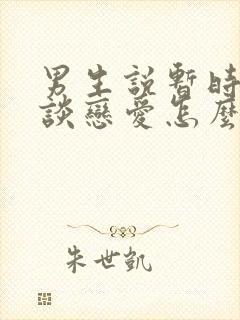 男生說暫時
談戀愛怎麼
朱世凱